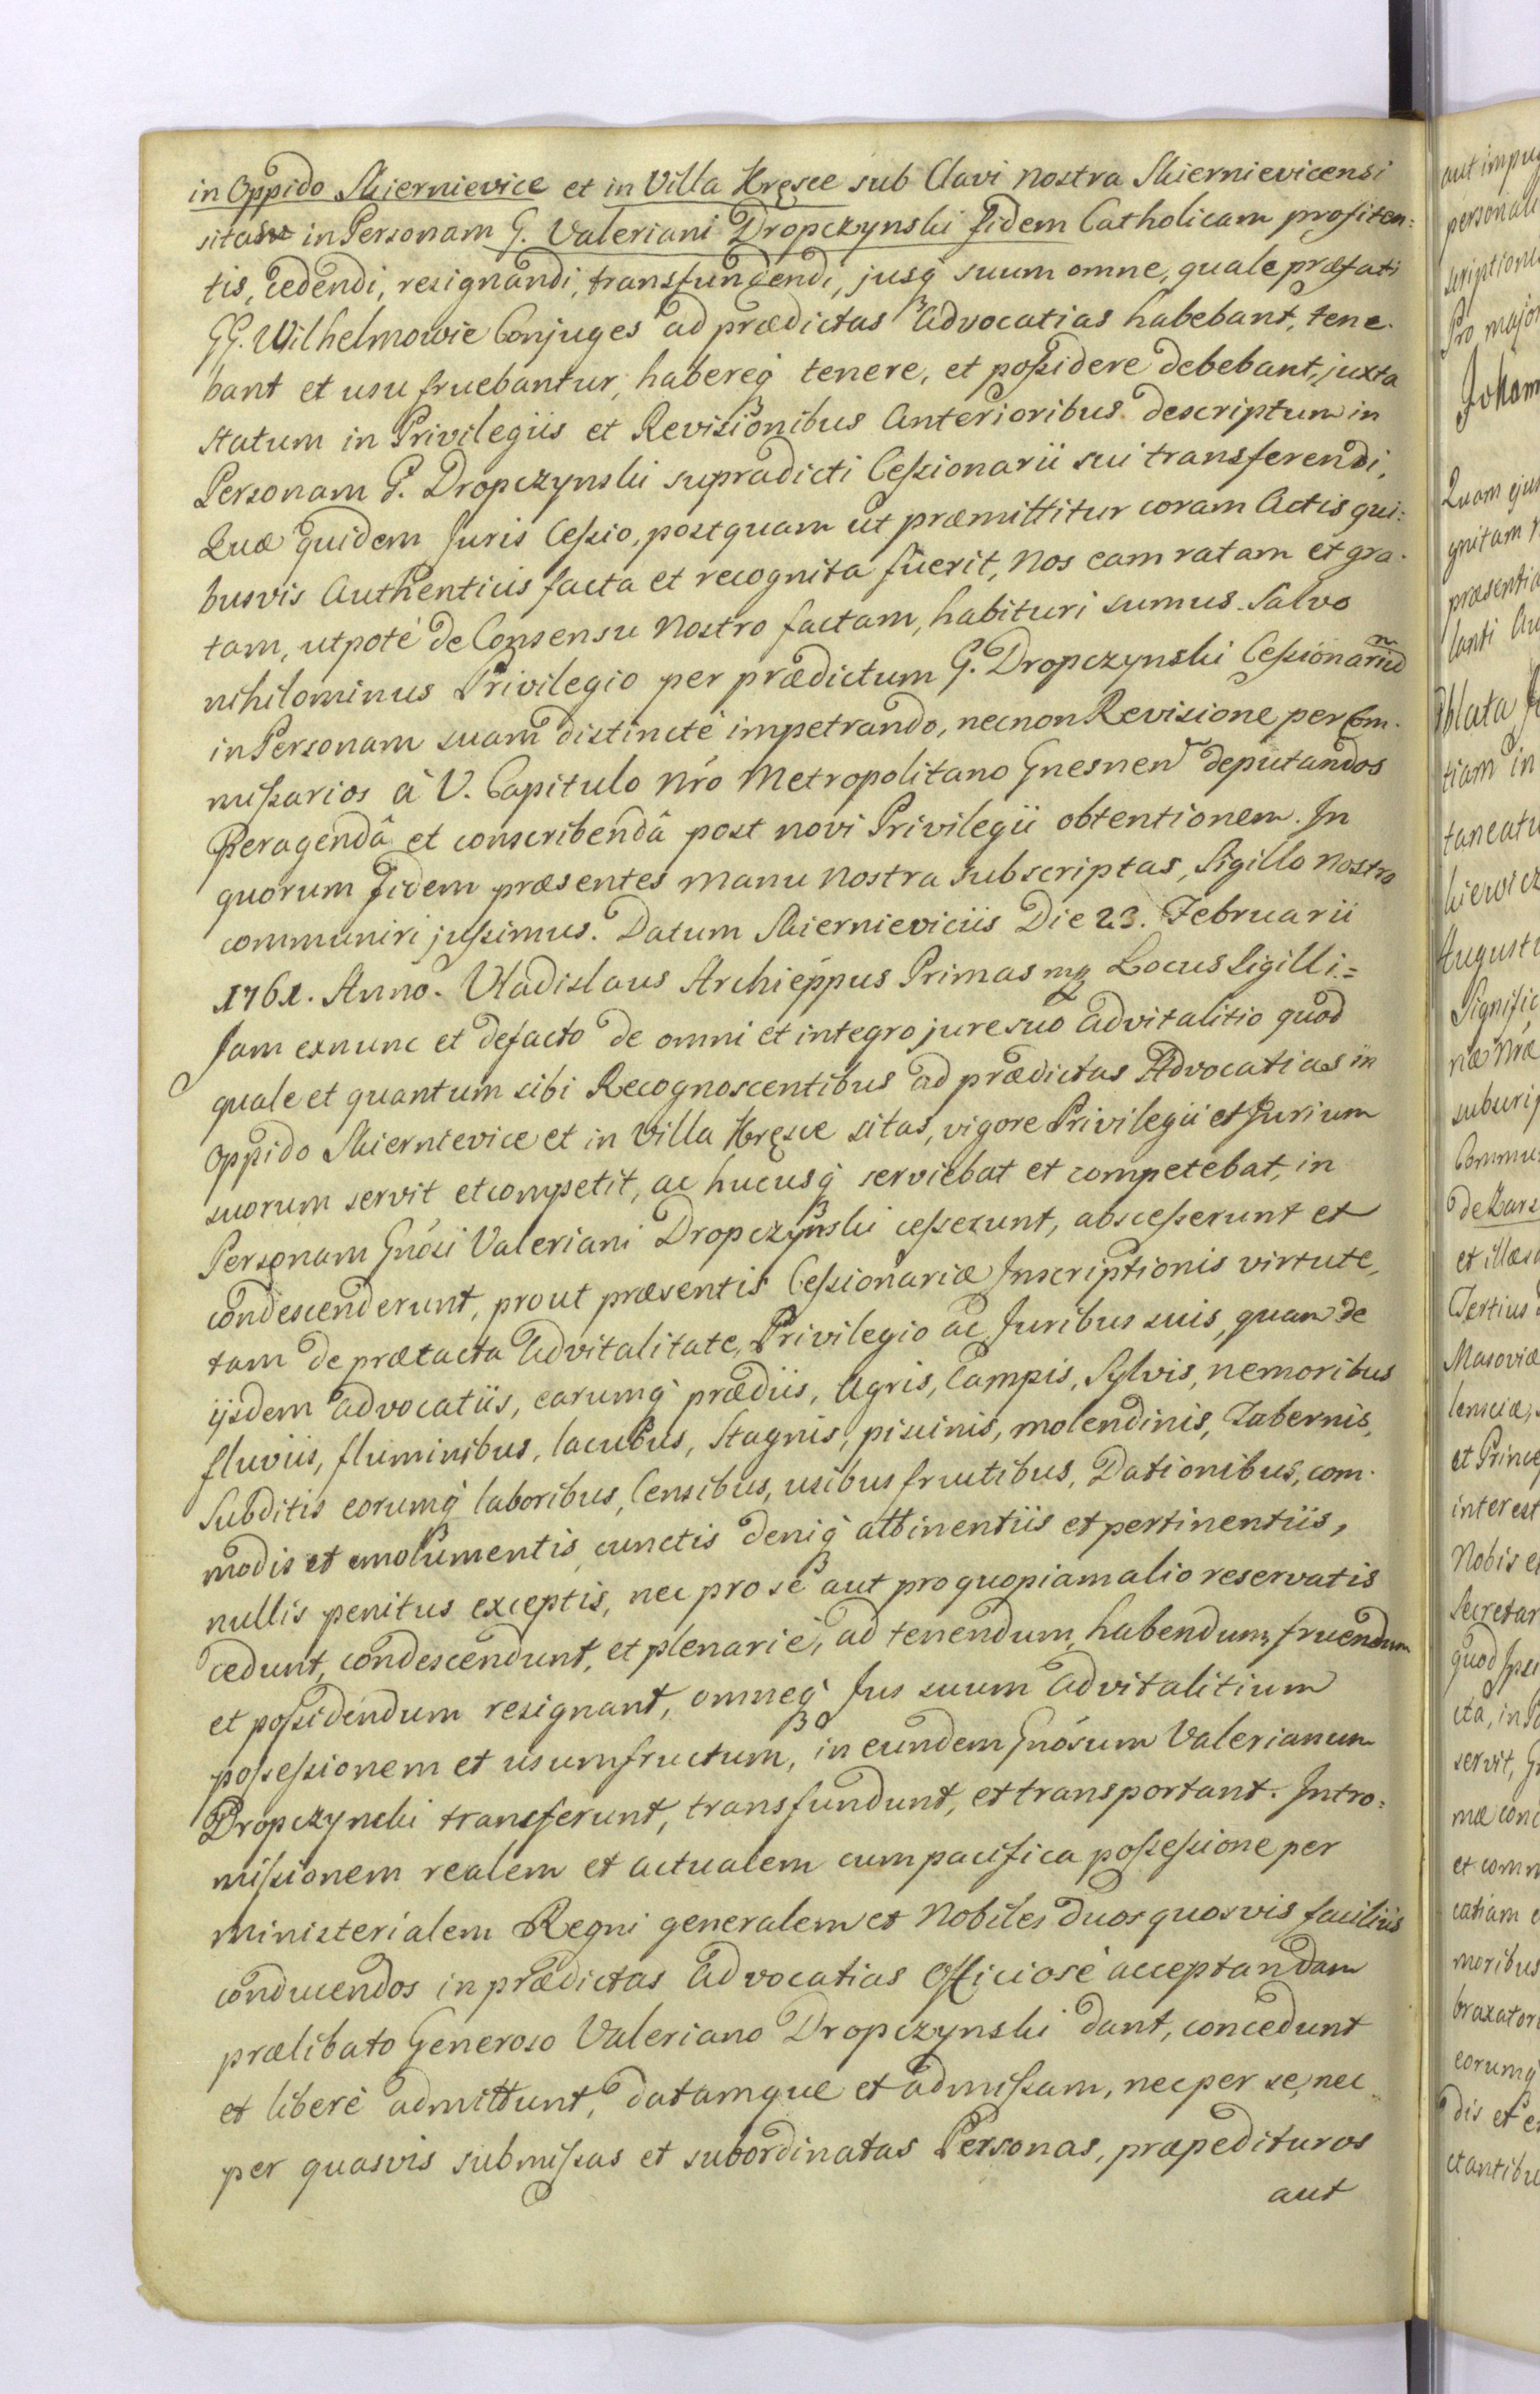 in Oppido Skiernievice et in Villa Hręsce sub Clavi nostra Skiernievicensi
sitas in Personam G. Valeriani Dropczynski fidem Catholicam profiten:
tis, cedendi, resignandi, transfundendi, jusq́ suum omne, quale præfati
GG. Wilhelmowie Conjuges ad prædictas Advocatias habebant, tene-
bant et usu fruebantur, habereq́ tenere, et poßidere debebant, juxta
statum in Privilegiis et Revisionibus Anterioribus descriptum in
Personam G. Dropczynski supradicti Ceßionarii sui transferendi,
Quæ quidem Juris Ceßio, postquam ut præmittitur coram Actis qui:
busvis Authenticis facta et recognita fuerit, Nos eam ratam et gra-
tam, utpotè de Consensu Nostro factam, habituri sumus. Salvo
nihilominus Privilegio per prædictum G. Dropczynski Ceßionariũ
in Personam suam distinctè impetrando, necnon Revisione per Com-
mißarios à V. Capitulo Nró Metropolitano Gnesnen̄ deputandos
Peragendâ et conscribendâ post novi Privilegii obtentionem. In
quorum fidem præsentes manu nostra subscriptas, Sigillo nostro
communiri jußimus. Datum Skiernieviciis Die 23. Februarii
1761. Anno. Vladislaus Archiéppus Primas mp Locus Sigilli.=
Jam exnunc et defacto de omni et integro jure suo advitalitio quod
quale et quantum sibi Recognoscentibus ad prædictas Advocatias in
Oppido Skiernievice et in Villa Hręsce sitas, vigore Privilegii et Jurium
suorum servit et competit, ac hucusq́ serviebat et competebat, in
Personam Gnósi Valeriani Dropczynski ceßerunt, absceßerunt et
condescenderunt, prout præsentis Ceßionariæ Inscriptionis virtute,
tam de prætacta Advitalitate, Privilegio ac Juribus suis, quam de
ijsdem advocatiis, earumq́ prædiis, Agris, Campis, Sylvis, nemoribus
fluviis, fluminibus, lacubus, Stagnis, piscinis, molendinis, Tabernis,
Subditis eorumq́ laboribus, Censibus, usibus fructibus, Dationibus, com-
modis et emolumentis, cunctis deniq́ attinentiis et pertinentiis,
nullis penitus exceptis, nec pro se aut pro quopiam alio reservatis
cedunt, condescendunt, et plenariè, ad tenendum, habendum, fruendum
et poßidendum resignant, omneq́ Jus suum advitalitium
poßeßionem et usumfructum, in eundem Gnósum Valerianum
Dropczynski transferunt, transfundunt, et transportant. Intro:
mißionem realem et actualem cum pacifica poßeßione per
Ministerialem Regni generalem et Nobiles duos quosvis faciliùs
conducendos in prædictas advocatias Officiosè acceptandam
prælibato Generoso Valeriano Dropczynski dant, concedunt
et liberè admittunt, datamque et admißam, nec per se, nec
per quasvis submißas et subordinatas Personas, præpedituros
aut